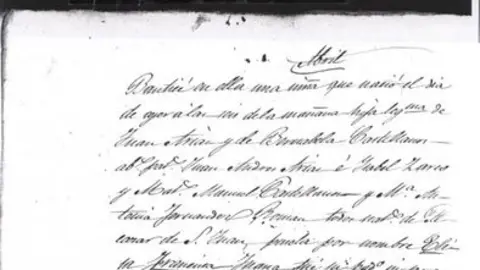 Abril
Bauticé en ella una niña que nació el dia
de ayer á las seis de la mañana hija legma de
Juan Arias y de Bernabela Castellanos
abs pats Juan Andres é Isabel Zarco
y Mats Manuel Castellanos y Ma An
tonia Fernandez Roman todos nats de
de S. Juan, púsele por nombre
Francisca Juana fué